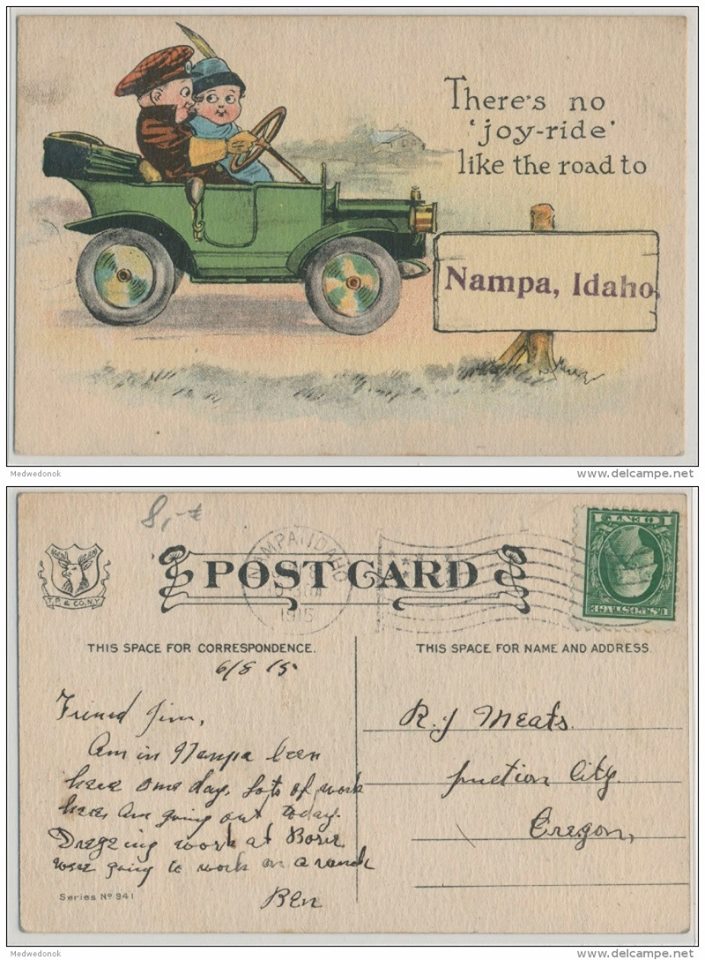 There's no
'joy-ride'
like the road to
Nampa, Idaho.
Medwedonok
www.delcampe.net
8,-€
T.P. & CO. N.Y.
POST CARD
NAMPA, IDAHO
1915
1 CENT 1
U.S. POSTAGE
THIS SPACE FOR CORRESPONDENCE.
THIS SPACE FOR NAME AND ADDRESS
6/8 15
Friend Jim,
Am in Nampa been
here one day. Lots of work
here Am going out today.
work at Boise
were going to work on a ranch
Ben
R. J Meats.
Junction City.
Oregon,
Series No 941
Medwedonok
www.delcampe.net